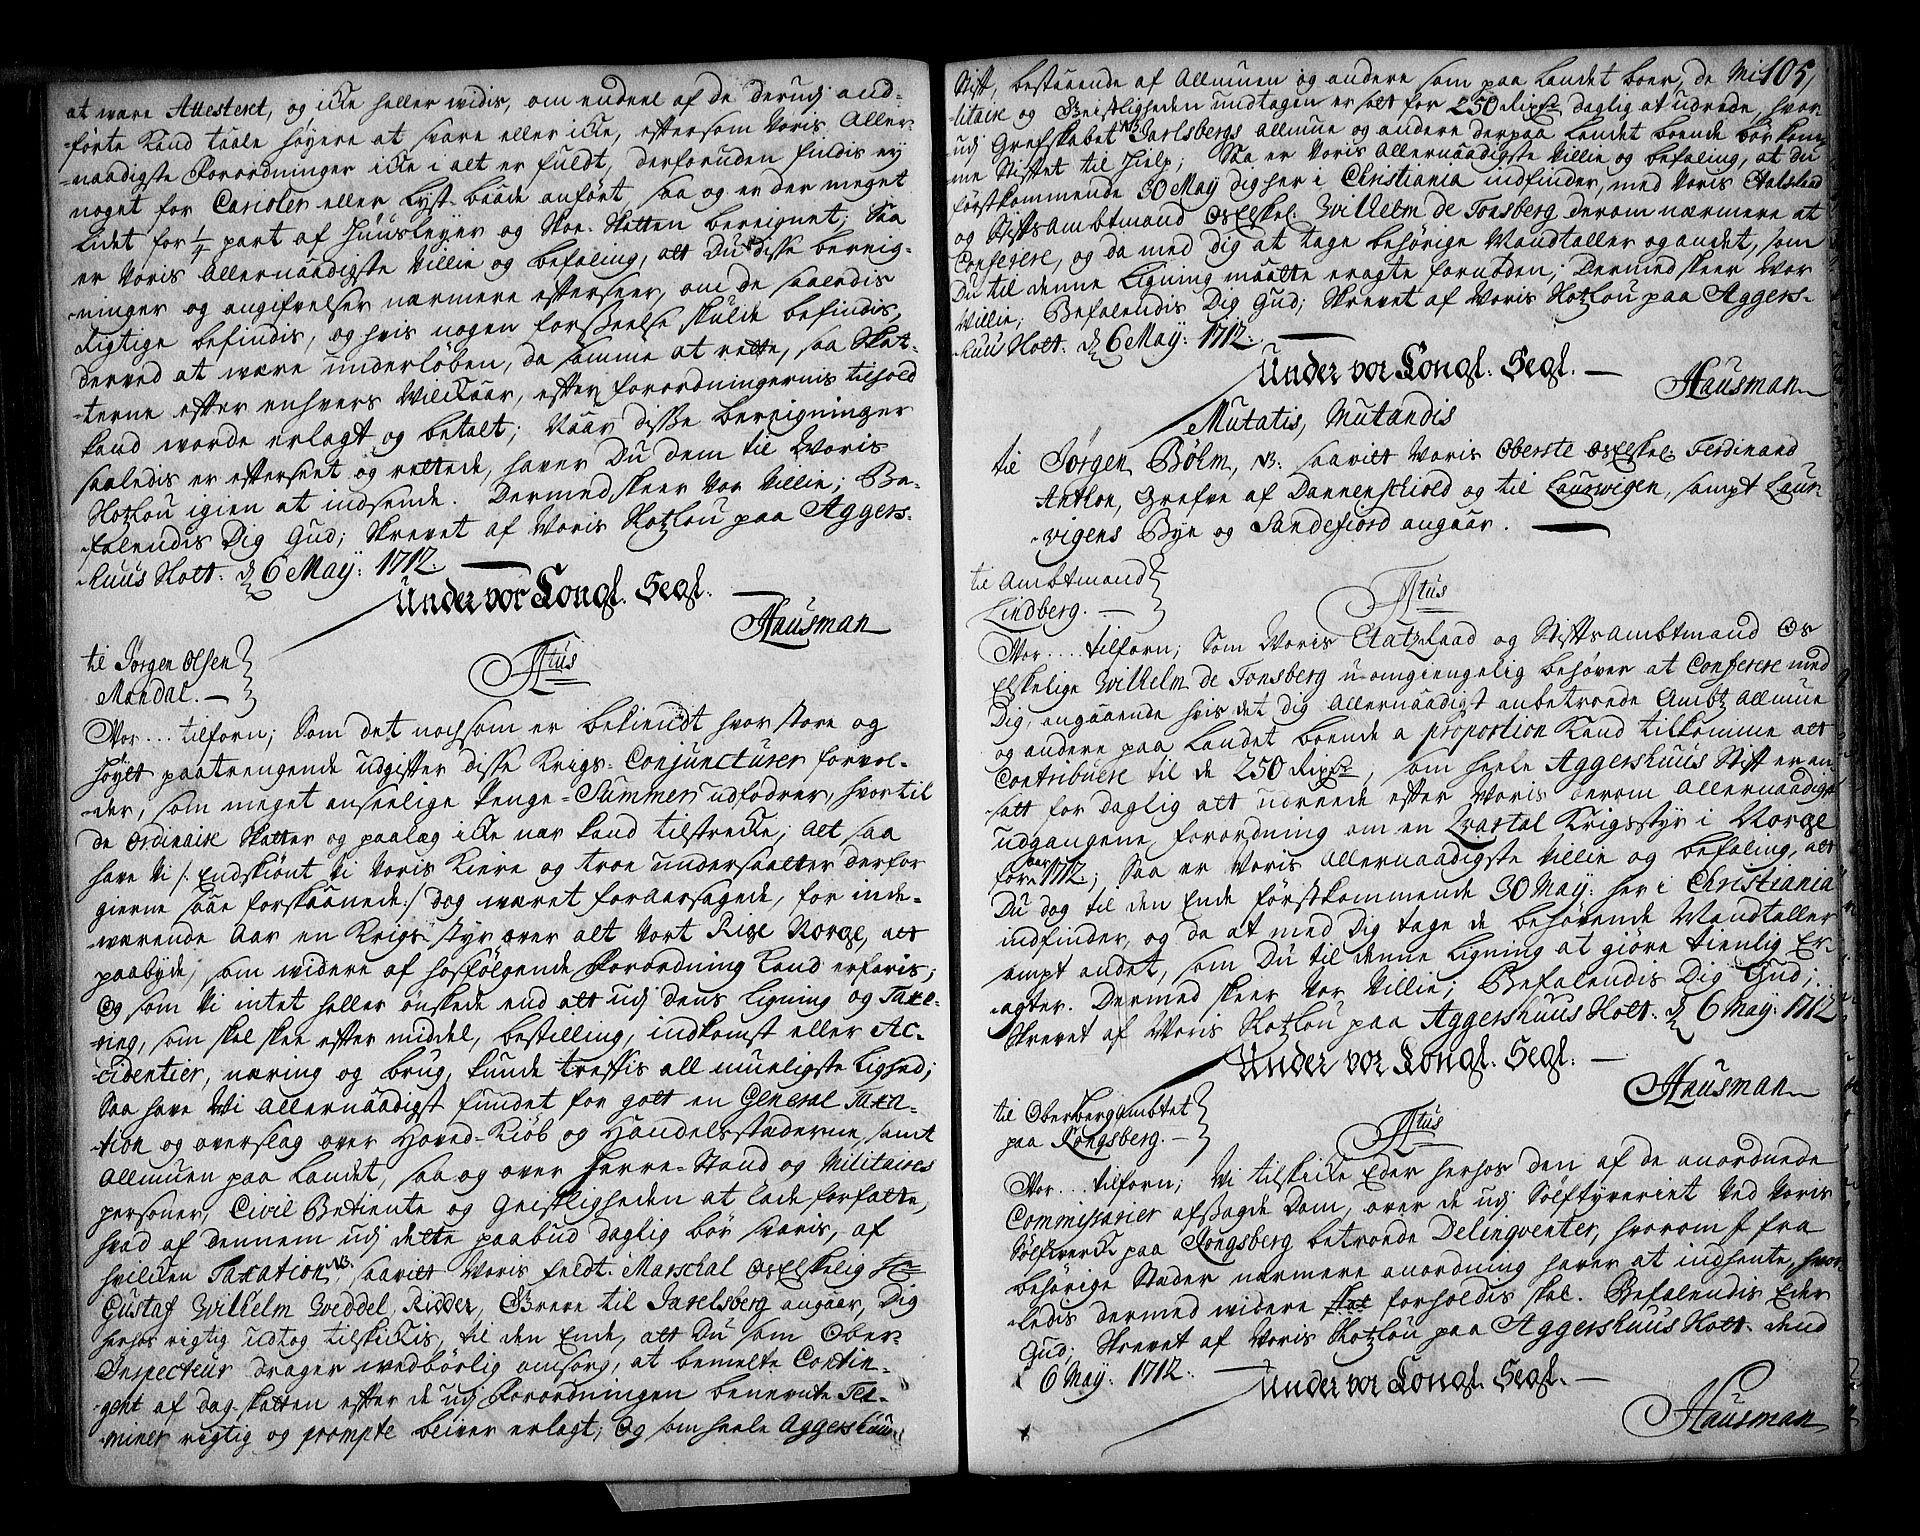 at være Attesteret, og icke heller vidis, om endeel af de derudj and-
-förte kand taale höyere at svare eller icke, eftersom Voris Aller-
-naadigste Forordninger icke i alt er fuldt, derforuden findis ey
noget for Carioler eller Lyst-baade anfört, saa og er der meget
lidet for ¼ part af Huusleyer og Skoe-Skatten beregnet; Saa
er Voris Allernaadigste Villie og befaling, att Du disse bereig-
-ninger og angifvelser nærmere efterseer, om de saaledis
rigtige befindis, og hvis nogen forseelse skulde befindis,
derved at være underlöben, da samme at rette, saa Skat-
-terne efter enhvers Vilckaar, efter forordningernis tilhold
kand vorde erlagt og betalt; Naar disse bereigninger
saaledis er efterseet og rettede, haver Du dem til Voris
Slotzlou igien at indsende. Dermed skeer Vor Villie; Be-
-falendis Dig Gud; Skrevet af Voris Slotzlou paa Aggers-
-huus Slott. d 6 May: 1712.
Under vor Kongl. Segl.
Hausman
til Jörgen Olsen
Mandal.
F 4tus
Vor... tilforn; Som det nochsom er bekiendt hvor store og
höylt paatrengende udgifter disse Krigs-Conjuncturer forvol-
-der, som meget anseelige Penge-Summer udfodrer, hvortil
de ordinaire Skatter og paalæg icke nær kand tilstrecke; alt saa
have Vi /: Endskiönt Vi Voris Kiere og troe undersaatter derfor
gierne saae forskaanede:/ dog været foraarsagede, for inde-
-værende Aar en Krigs styr over alt Vort Rige Norge, att
paabyde, som videre af hosfölgende Forordning kand erfaris;
Og som Vi intet heller önskede end att udj dens ligning og Taxe-
-ring, som skal skee efter middel, bestilling, indkomst eller Ac-
-cidentier, næring og brug, kunde treffis all mueligste Lighed;
Saa have Vi Allernaadigst fundet for gott en General Taxa-
-tion og overslag over Hoved-Kiöb og Handelsstæderne, samt
Allmuen paa Landet, saa og over Herre-Stand og Militaires
personer, Civil Betiente og Geistligheden at lade forfatte,
hvad af dennem udj dette paabud daglig bör svaris, af
hvilcken Taxation NB. saavit Voris feldt-Marschal os Elskelig Hr
Gustaf Wilhelm Weddel, Ridder, Greve til Jarelsberg angaar, Dig
herhos rigtig udtog tilskickis, til den Ende, att Du som Ober-
Inspecteur drager vedbörlig omsorg, at bemelte Contin-
-gent af dag-skatten efter de udj Forordningen benevnte Ter-
-miner rigtig og prompte bliver erlagt; Og som heele Aggershuus
105,
Stift, bestaaende af Allmuen og andere som paa Landet boer, de Mi-
-litaire og Geistligheden undtagen er satt for 250 Rixdr daglig at udrede, hvor
udj Grefskabet NB Jarlsbergs Allmue og andere derpaa Landet boende bör kom-
me Stiftet til Hielp; Saa er Voris Allernaadigste Villie og befaling, at du
förstkommende 30 May dig her i Christiania indfinder, med Voris Etatsraad
og StiftsAmbtmand os Elskel. Wilhelm de Tonsberg derom nærmere at
Conferere, og da med dig at tage behörige Mandtaller og andet, som
Du til denne Ligning maatte eragte fornöden; Dermed skeer Vor
Villie; Befalendis Dig Gud; Skrevet af Voris Slotzlou paa Aggers-
huus Slott. d 6 May: 1712.
Under vor Kongl. Segl.
Hausman
Mutatis, Mutandis
til Jörgen Böhm, NB. saavitt Voris Oberste os Elskel: Ferdinand
Anthon, Grefve af Dannenschiold og til Laurwigen, sampt Laur-
-vigens Bye og Sandefiord angaar.
til Ambtmand
Lindberg.
F 4tus
Vor.... tilforn; Som Voris Etatzraad og StiftsAmbtmand os
Elskelige Wilhelm de Tonsberg u-omgiengelig behöver at Conferere med
Dig, angaaende hvis det dig Allernaadigst anbetroede Ambtz Allmue
og andere paa Landet boende a proportion kand tilkomme att
Contribuere til de 250 Rixdr, som heele Aggershuus Stift er an-
-satt for daglig att udreede efter Voris derom Allernaadigst
udgangene forordning om en Qvartal Krigsstyr i Norge
for Aar 1712; Saa er Voris Allernaadigste Villie og befaling, att
Du dog til den Ende förstkommende 30 May: her i Christiania
indfinder, og da at med Dig tage de behövende Mandtaller
sampt andet, som Du til denne Ligning at giöre tienlig Er-
-agter. Dermed skeer Vor Villie; Befalendis Dig Gud;
Skrevet af Voris Slotzlou paa Aggershuus Slott. d 6 May: 1712
Under vor Kongl. Segl.
Hausman
til Oberbergambtet
paa Kongsberg.
F 4tus
Vor... tilforn; Vi tilskicke Eder herhos den af de anordnede
Commissarier afsagde Dom, over de udj Sölftyveriet Ved Voris
Sölfverck paa Kongsberg betroede Delinqventer, hvorom I fra
behörige Stæder nærmere anordning haver at indhente, hvor-
-ledis dermed videre forholdis skal. Befalendis Eder
Gud; Skrevet af Voris Slotzlou paa Aggershuus Slott. dend
6 May: 1712.
Under vor Kongl. Segl.
Hausman